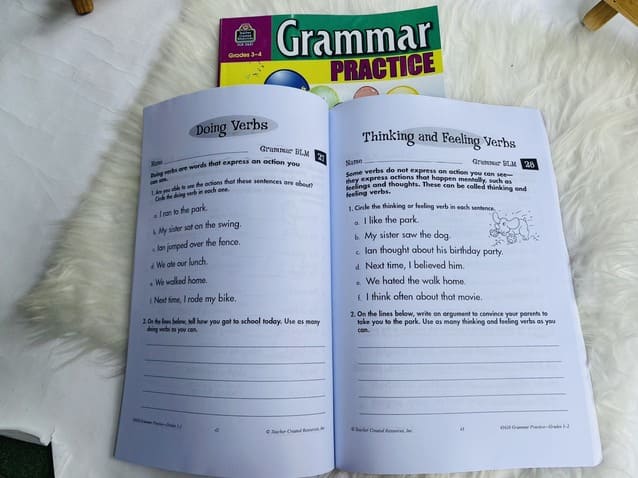 Teacher
Created
Resources
TCR 3621
Grades 3–4
Grammar
PRACTICE
Doing Verbs
Name
Grammar BLM 27
Doing verbs are words that express an action you
can see.
1. Are you able to see the actions that these sentences are about?
Circle the doing verb in each one.
a. I ran to the park.
b. My sister sat on the swing.
c. Ian jumped over the fence.
d. We ate our lunch.
e. We walked home.
f. Next time, I rode my bike.
2. On the lines below, tell how you got to school today. Use as many
doing verbs as you can.
#3620 Grammar Practice—Grades 1-2
42
© Teacher Created Resources, Inc.
Thinking and Feeling Verbs
Name
Grammar BLM 28
Some verbs do not express an action you can see—
they express actions that happen mentally, such as
feelings and thoughts. These can be called thinking and
feeling verbs.
1. Circle the thinking or feeling verb in each sentence.
a. I like the park.
b. My sister saw the dog.
c. Ian thought about his birthday party.
d. Next time, I believed him.
e. We hated the walk home.
f. I think often about that movie.
2. On the lines below, write an argument to convince your parents to
take you to the park. Use as many thinking and feeling verbs as you
can.
© Teacher Created Resources, Inc.
43
#3620 Grammar Practice—Grades 1-2